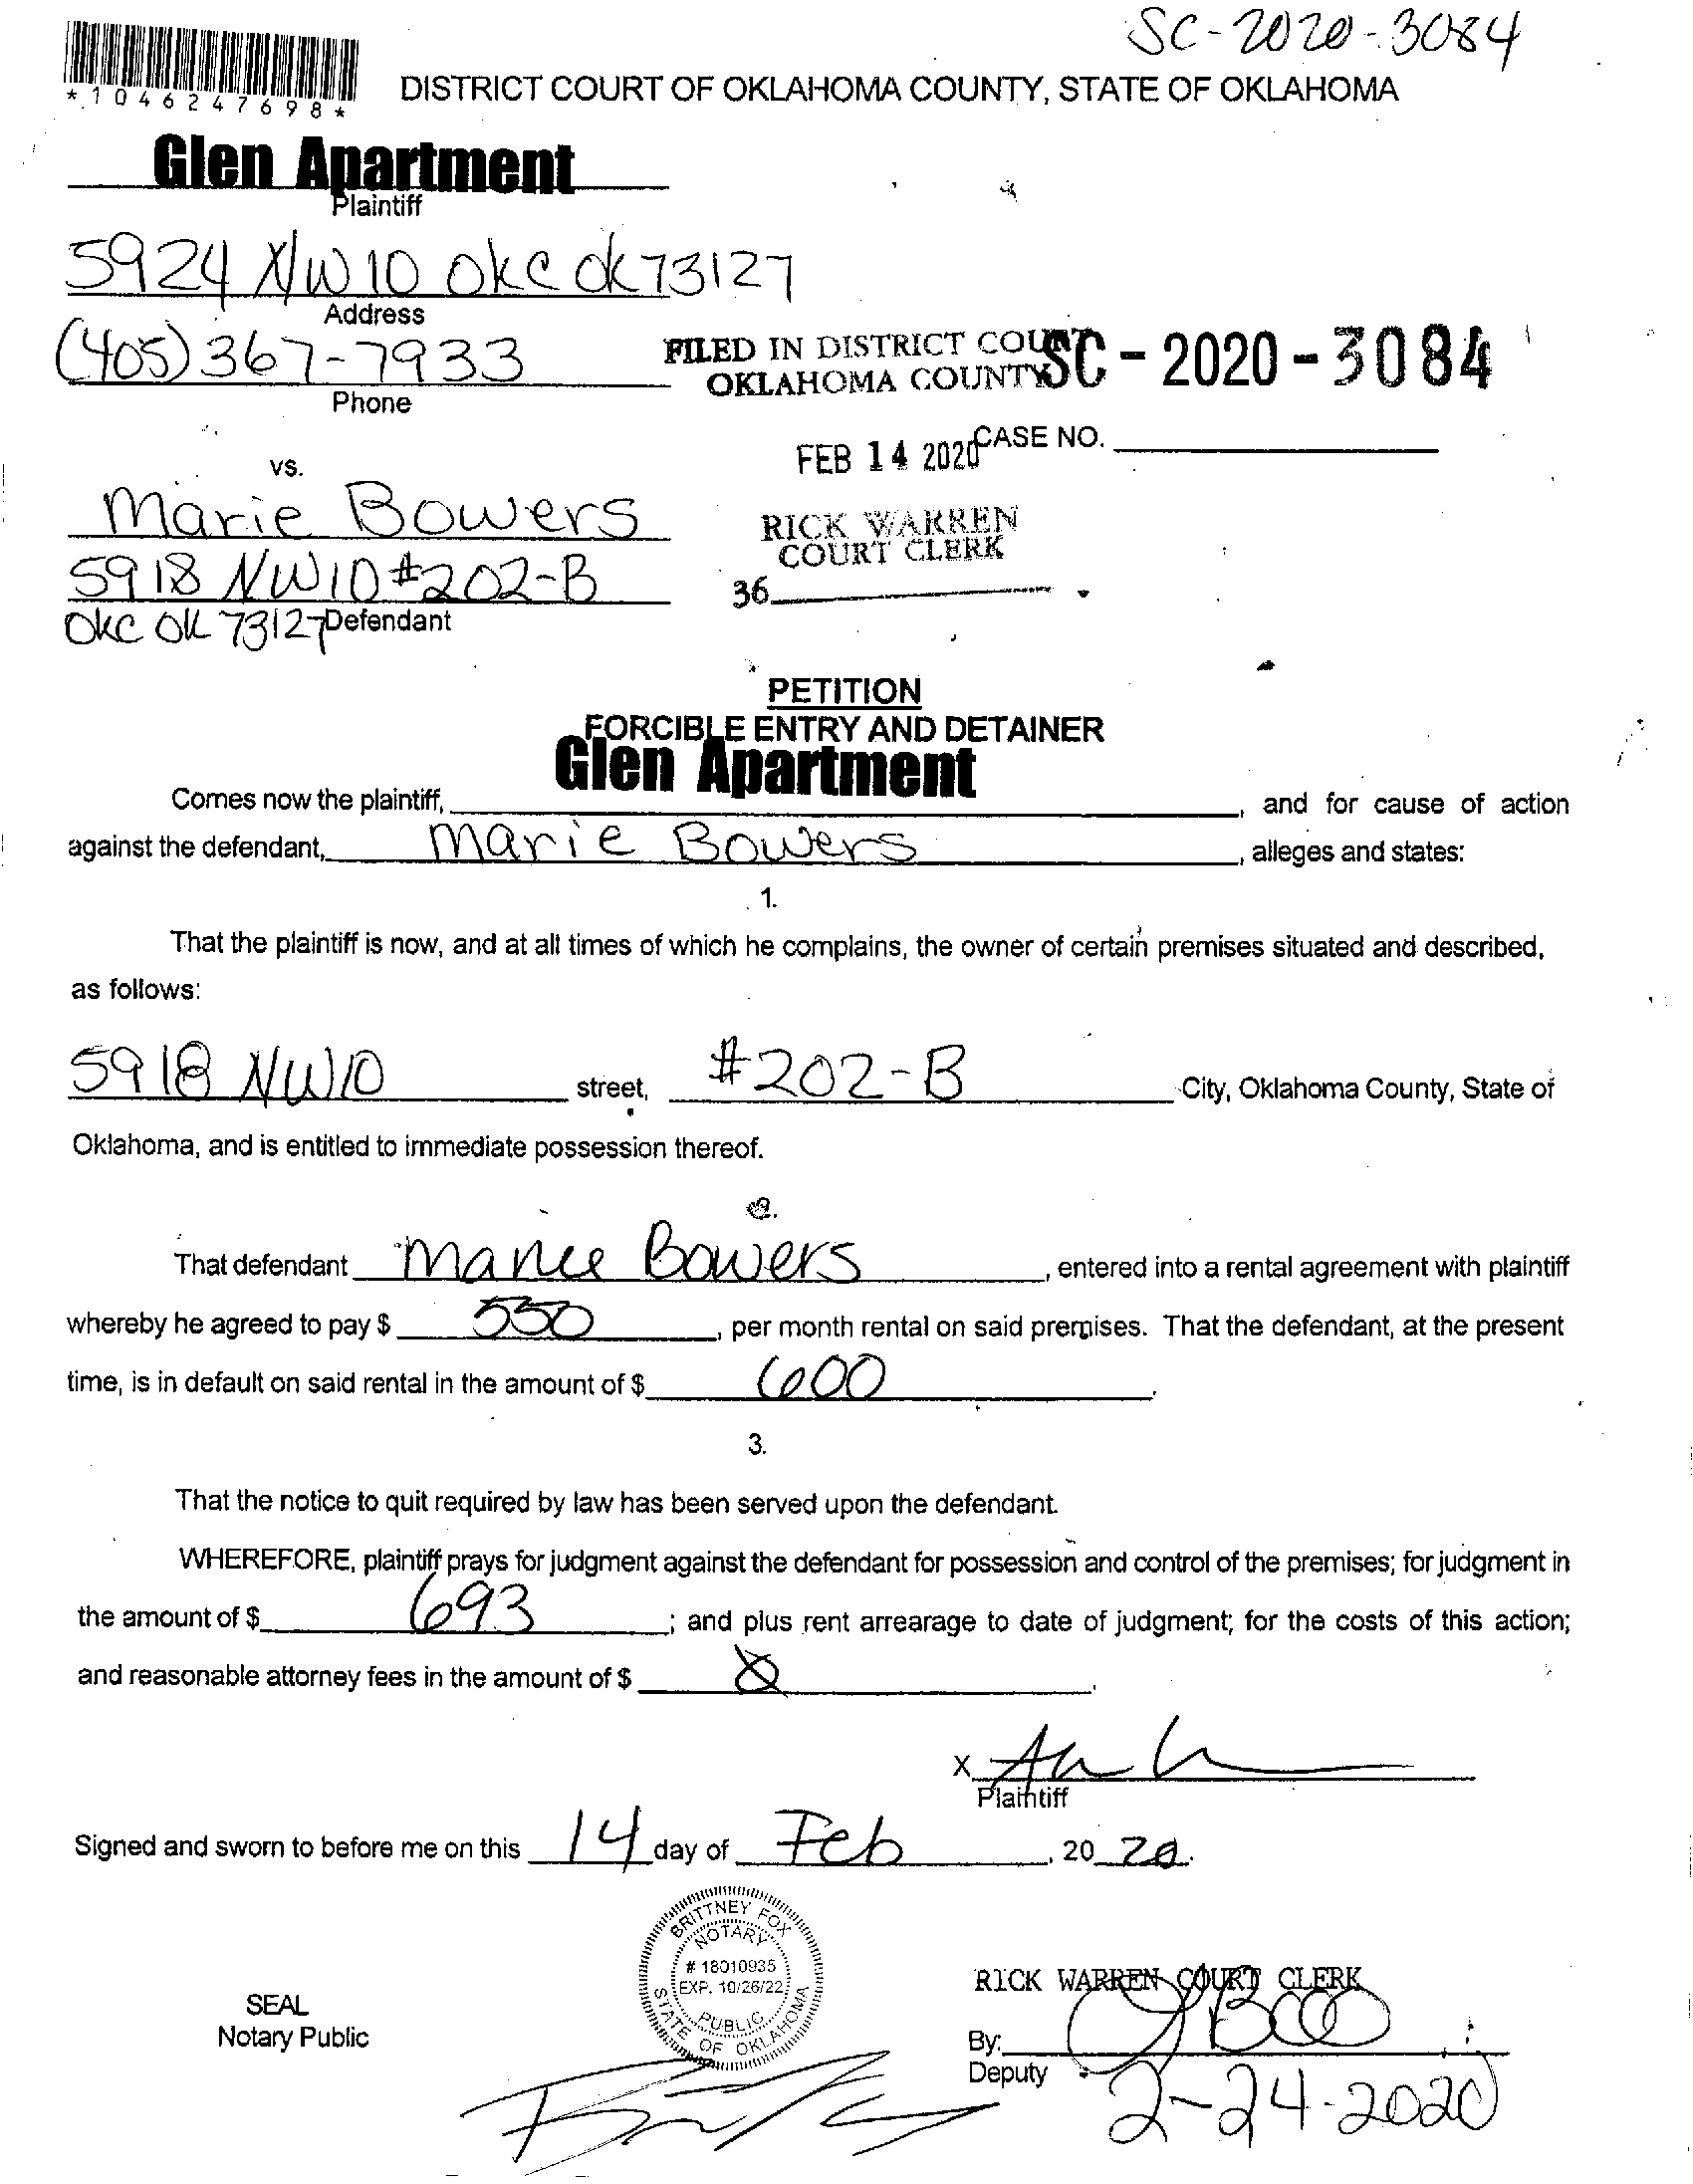 SC-2020-3084
*1046247698*
DISTRICT COURT OF OKLAHOMA COUNTY, STATE OF OKLAHOMA
Glen Apartment
Plaintiff
5924 NW 10 OKC OK 73127
Address
(405) 367-7933
Phone
FILED IN DISTRICT COURT
OKLAHOMA COUNTY
SC - 2020 - 3084
FEB 14 2020
CASE NO.
vs.
Marie Bowers
RICK WARREN
COURT CLERK
5918 NW10 #202-B
36
OKC OK 73127 Defendant
PETITION
FORCIBLE ENTRY AND DETAINER
Glen Apartment
Comes now the plaintiff, , and for cause of action
against the defendant, Marie Bowers , alleges and states:
1.
That the plaintiff is now, and at all times of which he complains, the owner of certain premises situated and described,
as follows:
5918 NW10 street, #202-B City, Oklahoma County, State of
Oklahoma, and is entitled to immediate possession thereof.
2.
That defendant Marie Bowers , entered into a rental agreement with plaintiff
whereby he agreed to pay $ 550 , per month rental on said premises. That the defendant, at the present
time, is in default on said rental in the amount of $ 600 .
3.
That the notice to quit required by law has been served upon the defendant.
WHEREFORE, plaintiff prays for judgment against the defendant for possession and control of the premises; for judgment in
the amount of $ 693 ; and plus rent arrearage to date of judgment; for the costs of this action;
and reasonable attorney fees in the amount of $ .
X
Plaintiff
Signed and sworn to before me on this 14 day of Feb , 20 20.
BRITTNEY FOX
NOTARY
# 18010935
EXP. 10/26/22
PUBLIC
STATE OF OKLAHOMA
SEAL
Notary Public
RICK WARREN COURT CLERK
By:
Deputy
2-24-2020